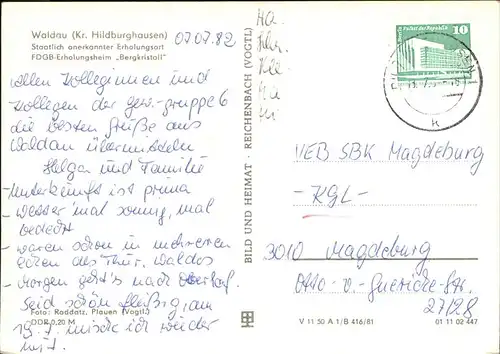 Waldau (Kr. Hildburghausen)
Staatlich anerkannter Erholungsort
FDGB-Erholungsheim „Bergkristall"
07.07.82
allen Kolleginnen und
Kollegen der gew.-gruppe 6
die besten Grüße aus
Waldau übermitteln
Helga und Familie
- Unterkunft ist prima
- Wetter 'mal sonnig, mal
bedeckt
- waren schon in mehreren
des Thür. Waldes
- Morgen geht's nach Oberhof.
Seid schön fleißig, am
19.7. mische ich wieder
mit.
Foto: Raddatz, Plauen (Vogtl.)
DDR 0,20 M
BILD UND HEIMAT · REICHENBACH (VOGTL)
10
VEB SBK Magdeburg
- KGL -
3010 Magdeburg
Otto-v-Guericke-Str.
27/28
V 11 50 A 1/B 416/81
01 11 02 447